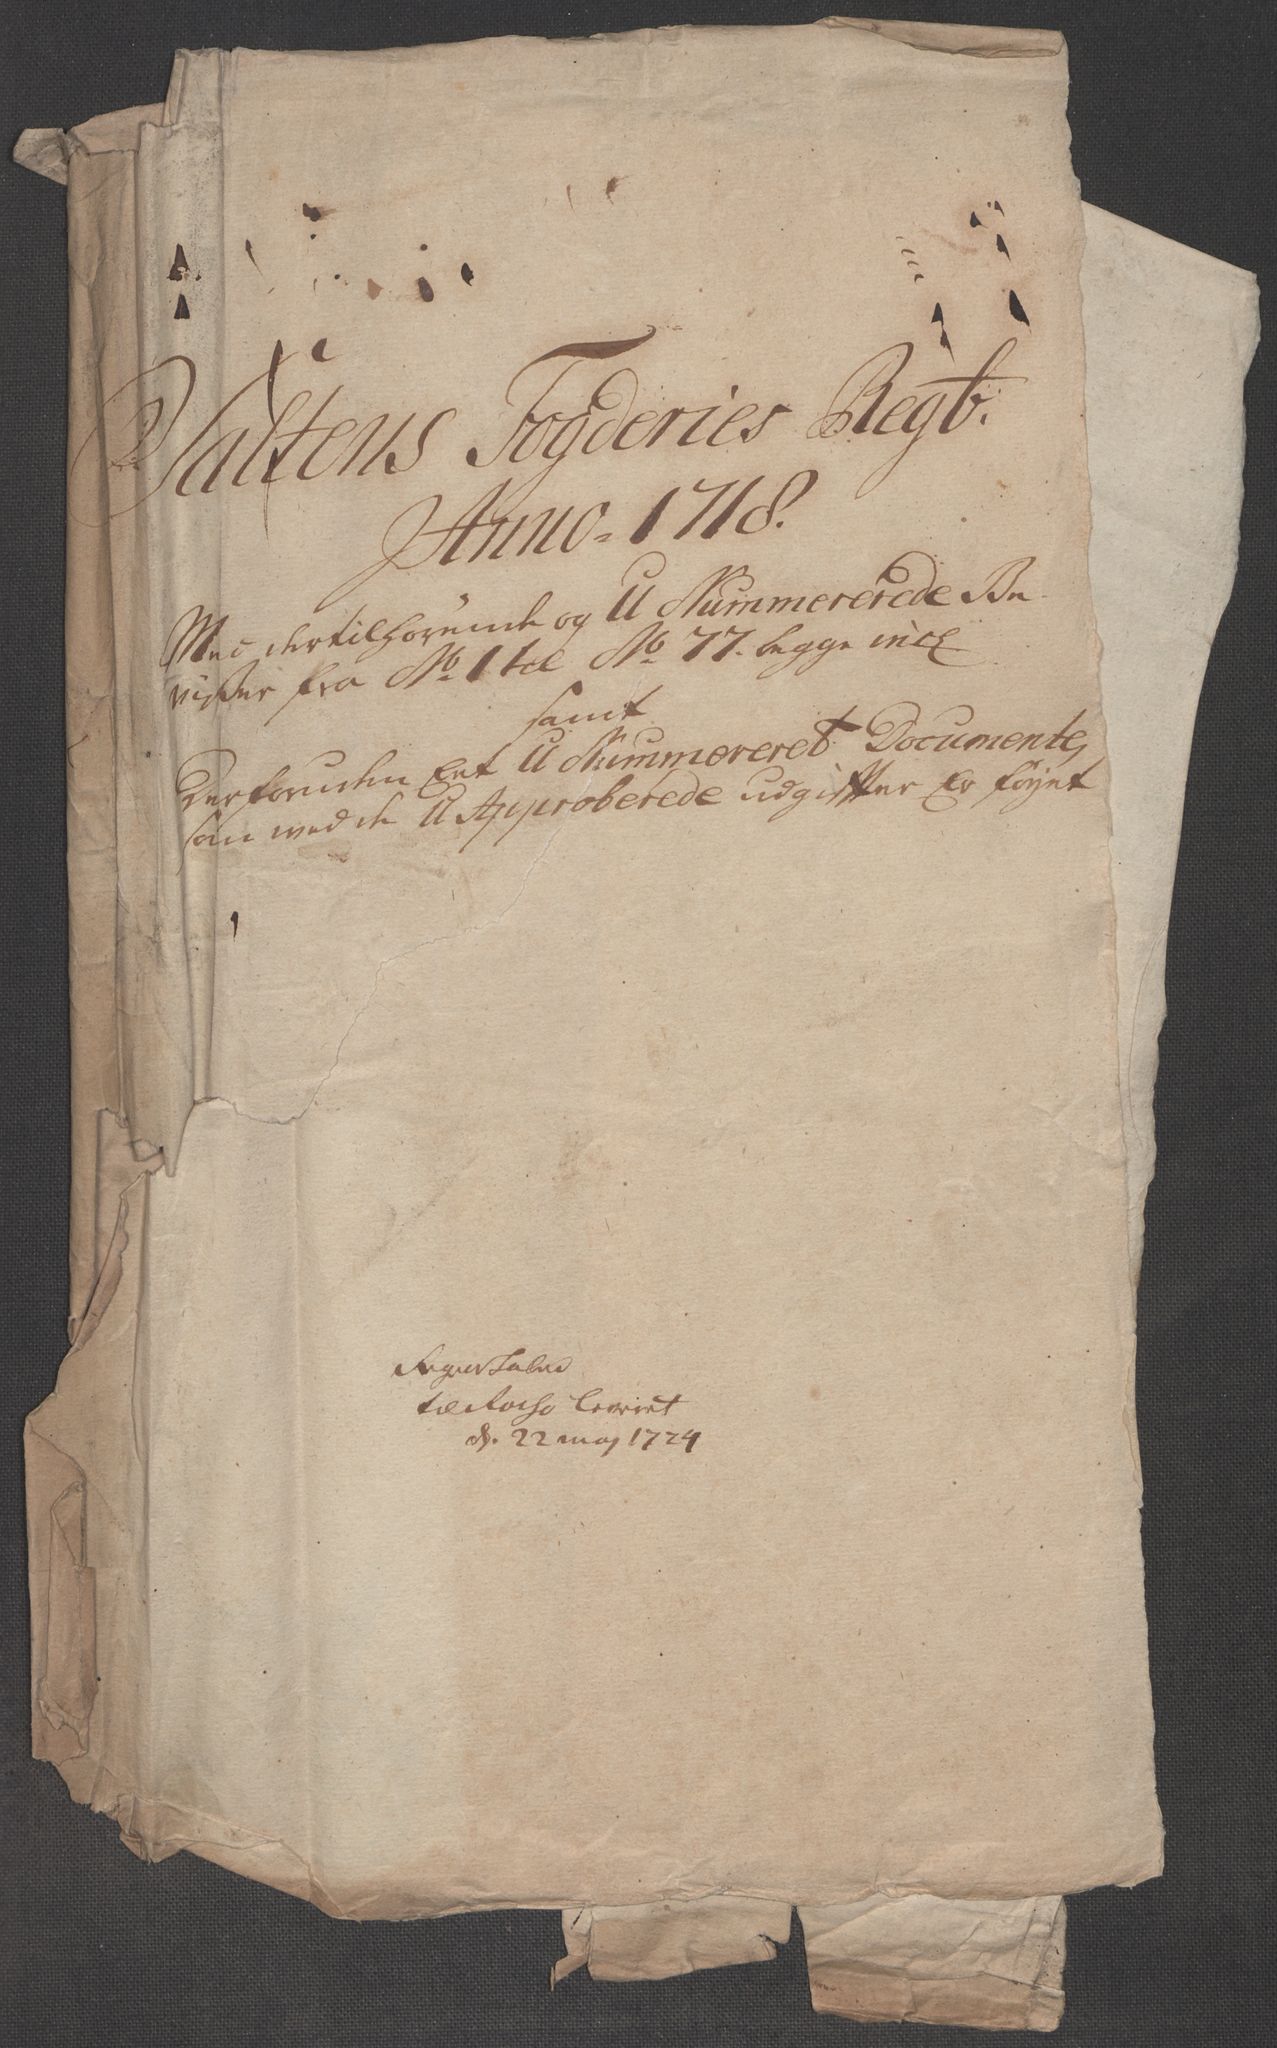 Saltens Fogderies Regb.
Anno 1718.
Med dertilhörende og U Nummererede Be-
viser fra No 1 til No 77. begge incl
samt
Derforuden Eet U Nummereret Documente,
som ved de U Approberede udgifter er föyet
til leveret
d. 22 maj 1724